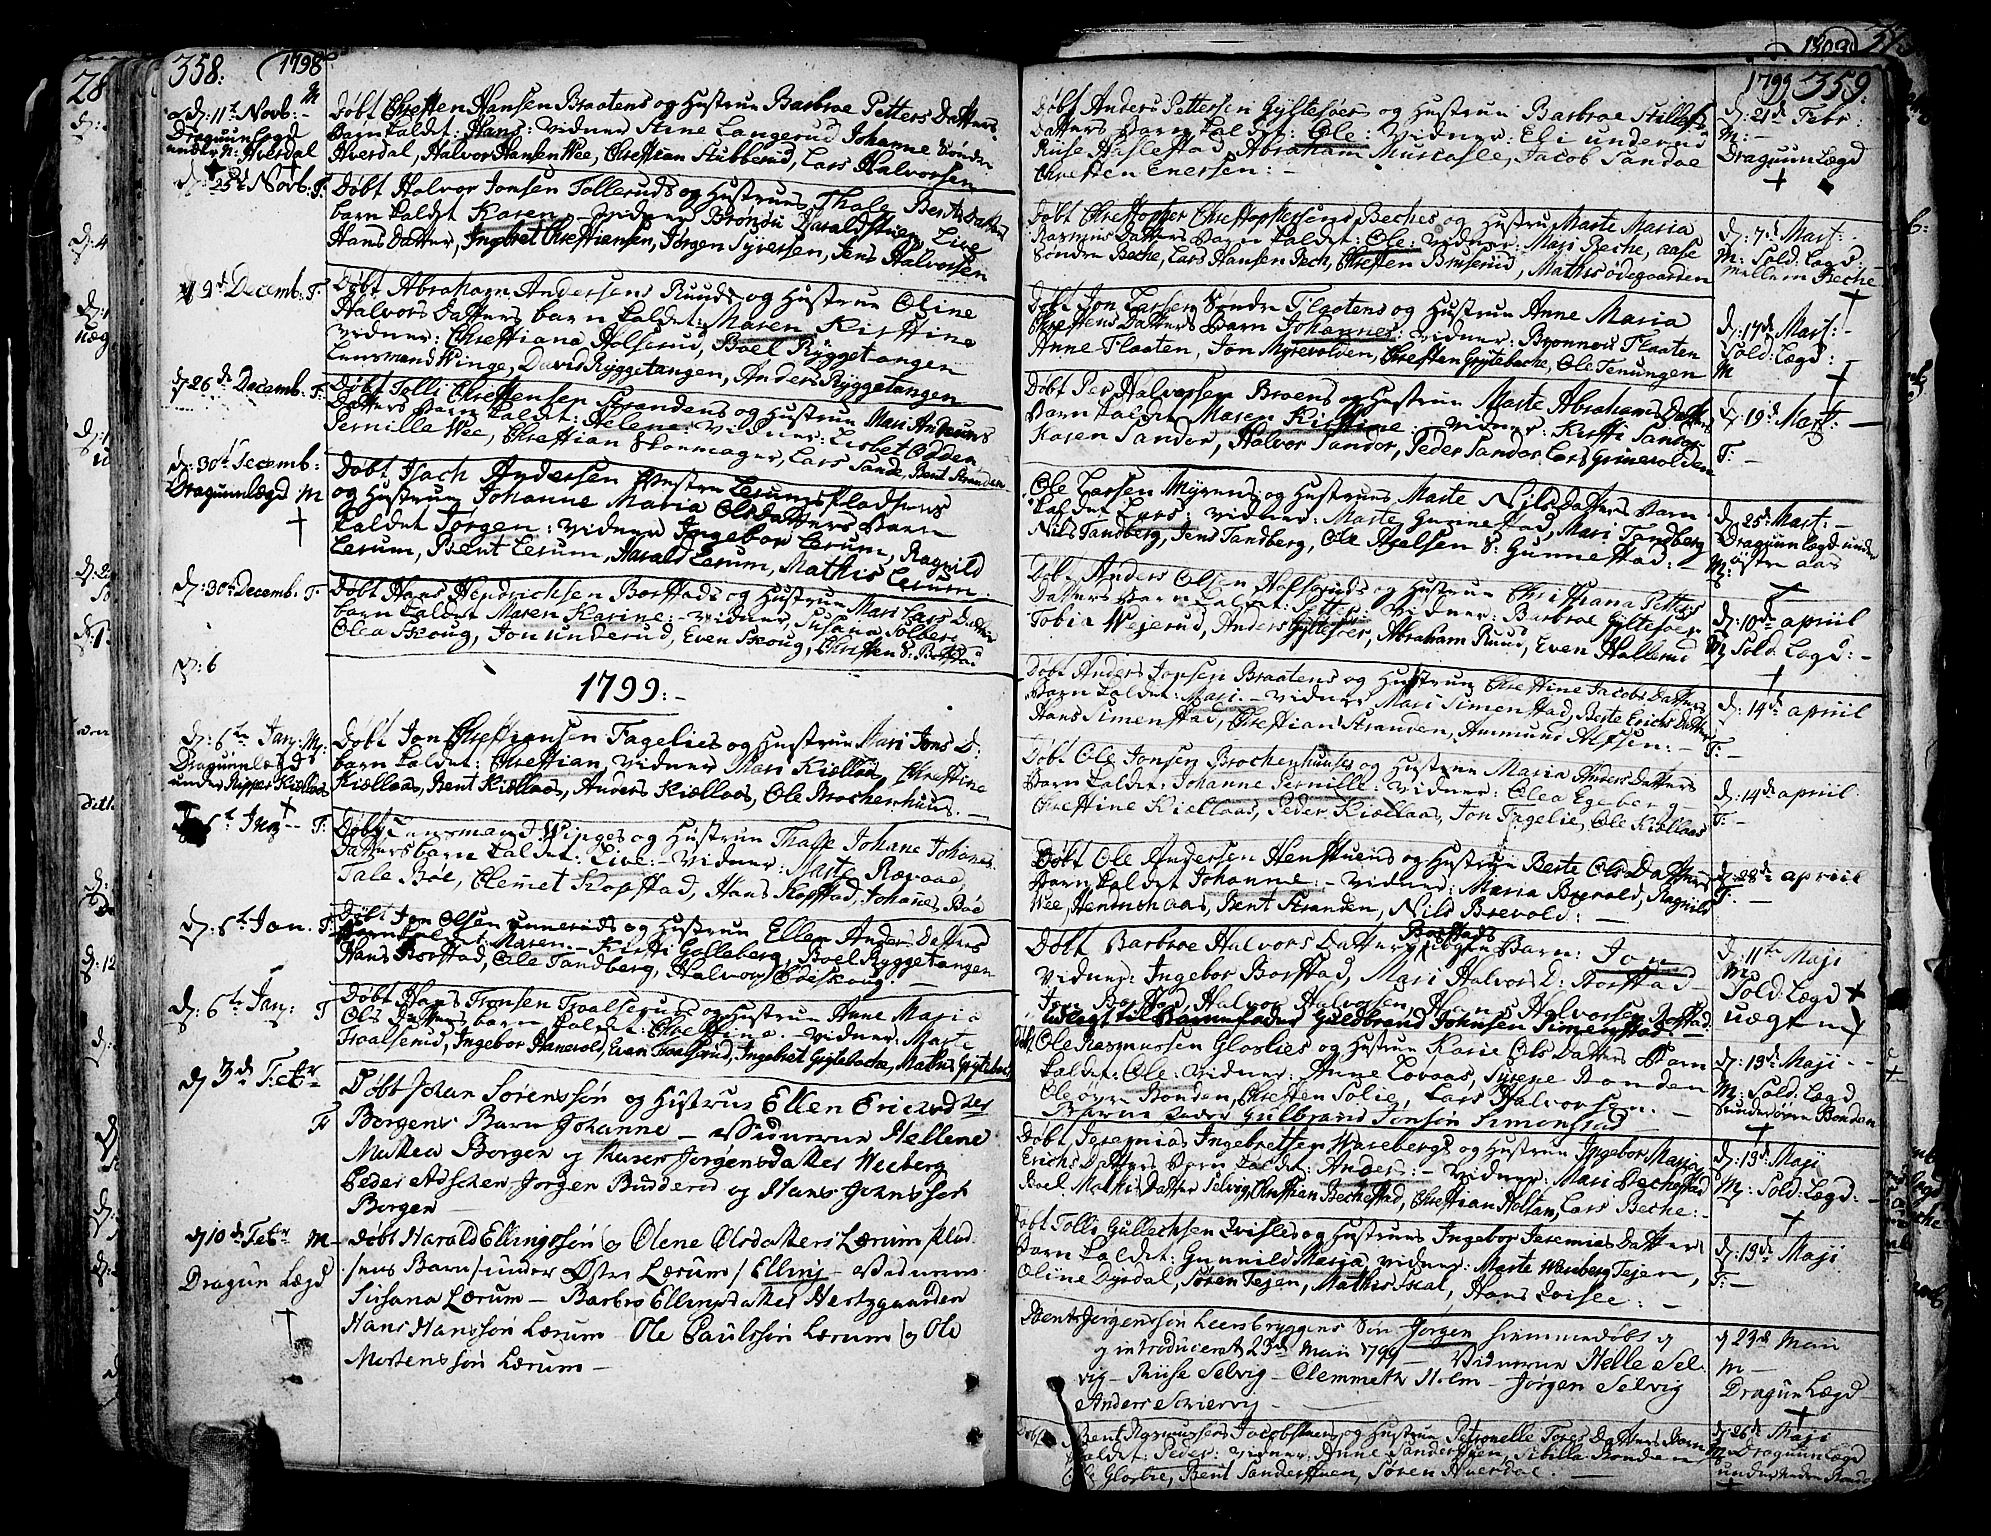 358: 1798
d: 11te Novb: - M
Dragunn Lægd
under N: Hversdal
Døbt Chresten Hansen Braatens og Hustrue Barbroe Petters Datters
Barn kaldet: Hans: vidner Stine Langerud, Johanne Søndre
Hverdal, Halvor Hansen Wee, Chrestian Stubberud, Lars Halvorsen
d: 25de Novb: F:
Døbt Halvor Jonsen Tollerruds og Hustrues Thale Berthes Datters
barn kaldet Karen - vidner Brondu Haraldstuen, Live
Hans Datter, Ingebret Chrestiansen, Jørgen Syversen, Jens Halvorsen
d 9de Decemb: F
Døbt Abraham Andersens Ruuds og Hustrue Oline
Halvors Datters barn kaldet: Maren Kirstine
vidner: Chrestiana Holserud, Boel Ryggetangen
Lensmand Winge, David Ryggetangen, Anders Ryggetangen
d 26de Decemb: F:
Døbt Tolli Chrestensen Strandens og Hustrue Mari Anduns
Datters Barn kaldet: Helene: vidner: Lisbet Odden
Pernille Wee, Chrestian Skomager, Lars Sande, Bent Stranden
d: 30te Decemb:
Dragunnlægd M
Døbt Isach Andersen Westre Lerums pladsens
og Hustrue Johanne Maria Olsdatters Barn
kaldet Jørgen: vidner Ingebor Lerum, Ragnild
Lerum, Bent Lerum, Harald Lerum, Mathis Lerum
d: 30te Decemb: F
Døbt Hans Hendrichsen Borstads og Hustrue Mari Lars Datter
barn kaldet Maren Karine: - vidner, Susana Solberg
Olea Skoug, Jon underud, Even Skoug, Chresten S: Borstad
d: 6
1799: -
d: 6te Jan: M:
Dragunnlægd
under Nipper Kiøllaas
Døbt Jon Chrestiansen Fagelies og Hustrue Mari Jons D:
barn kaldet: Chrestian, vidner Mari Kiøllaas, Chrestine
Kiøllaas, Bent Kiøllaas, Anders Kiøllaas, Ole Brochenhuus. -
6te Jan - F:
Døbt Lensmand Winges og Hustrue Thalle Johane Johanes
Datters barn kaldet: Live: - vidner: Marte Rævaae,
Tale Bøe, Clemet Kopstad, Hans Kopstad, Johanes Bøe
d: 6te Jan. F:
Døbt Jon Olsen unneruds og Hustrue Ellen Anders Datters
Barn kaldet: Maren. - Kirsti Golleberg, Boel Ryggetangen
Hans Borstad, Ole Tandberg, Halvor Edeskoug. -
d: 6te Jan: F
Døbt Hans Tronsen Fraalseruds og Hustrue Anne Maria
Ols Datters barn kaldet: Chrestine - vidner: Marte
Fraalserud, Ingebor Hanevold, Even Fraalserud, Ingebret Gyltebeche, Mathis Gyltebeche
d 3de Febr
F
Døbt Johan Sørenssøn og Hustrue Ellen Ericsdtters
Borgens Barn Johanne - Vidnerne Hellene
Mathea Borgen og Karen Jørgensdatter Weeberg
Peder Askchen Jørgen Budderud og Hans Johnssøn
Borgen -
d 10de Febr M -
Dragun Lægd
Døbt Harald Ellingssøn og Olene Olsdatters Lærum plad
sens Barn /under Østre Lærum/ Elling - Vidnerne
Susana Lærum - Barbro Ellingsdatter Hertzgaarden
Hans Hanssøn Lærum - Ole Paulssøn Lærum og Ole
Mortenssøn Lærum -
1799 359:
Døbt Anders Pettersen Gyltesøes og Hustrue Barbroe Stillefs
Datters Barn kaldet: Ole: vidner: Eli underud
Riise Haslestad, Abraham Murcasle, Jacob Sandae
Chresten Enersen: -
d: 21de Febr:
M: -
Dragunn Lægd
Døbt Chrestopher Chrestophersens Beches og Hustrue Marte Maria
Rasmus Datters Barn kaldet: Ole: vidner: Mari Beche, Aase
Søndre Beche, Lars Hansen Pech, Chresten Bruserud, Mathis ødegaarden
d: 7de Mart:
M: Sold: Lægd
mellem Beche
Døbt Jon Larsen Søndre Flaatens og Hustrue Anne Maria
Chrestens Datters Barn Johannes: vidner: Bronnou Flaaten
Anne Flaaten, Jon Myrevolden, Chresten Gyltebeche, Ole Tenungen
d: 17de Mart: -
Sold: Lægd:
M
Døbt Per Halvorsen Broens og Hustrue Marte Abrahams Datters
Barn kaldet Maren Kirstine - vidner: Kirsti Sandor
Karen Sander, Halvor Sandor, Peder Sandor, Lars Grinevolden
d: 19de Mart: -
F: -
Ole Larsen Myrens og Hustrues Marte Nils Datters Barn
kaldet Lars: vidner: Marte Gunnestad, Mari Tandberg
Nils Tandberg, Jens Tandberg, Ole Axelsen S: Gunnestad: -
d: 25de Mart: -
Dragunn Lægd under
M: østre aas
Døbt Anders Olsen Holseruds og Hustrue Christiana Petters
Datters Barn kaldet: Petter: vidner: Barbroe Gyltesøe
Tobia Wejerud, Anders Gyltesøer, Abraham Ruud, Even Hallerud
d: 10de april
M Sold: Lægd: -
Døbt Anders Jonsen Braatens og Hustrue Chrestine Jacobs Datters
Barn kaldet: Mari. - vidner: Mari Simenstad, Berte Erichs Datter
Hans Simenstad, Chrestian Stranden, Ammund Alfsen: -
d: 14de april
F: -
Døbt Ole Jonsen Brochenhuuses og Hustrue Maria Anders Datters
Barn kaldet: Johanne Pernille: vidner: Olea Egeberg -
Chrestine Kiøllaas, Peder Kiøllaas, Jon Fagelie, Ole Kiøllaas
d: 14de april
F: -
Døbt Ole Andersen Henstuens og Hustrue Berte Ols Datters
Barn kaldet Johanne: - vidner: Maria Brevold, Ragnild
Wee, Henrich aas, Bent Stranden, Nils Brevold: -
d: 28de april
F: -
Døbt Barbroe Halvors Datters Borstads uægte Barn: Jon
vidner: Ingebor Borstad, Mari Halvors D: Borstad -
Jon Borstad, Halvor Halvorsen, Hans Halvorsen Borstad
udlagt til Barnefader Guldbrand Johnsen Simonstad
d: 11te Maji
M:
Sold: Lægd
uægte
Døbt Ole Rasmussen Gloslies og Hustrue Karie Ols Datters Barn
kaldet: Ole: vidner: Anne Lovaas, Syrene Bonden
Ole øvre Bonden, Chresten Solie, Lars Halvorsen. -
Barne fader Gulbrand Jonsøn Simonstad -
d: 13de Maji -
M: Sold: Lægd
under øvre Bonden
Døbt, Jeremias Ingebretsen Warebergs og Hustrue Ingebor Maria
Erichs Datters Barn kaldet: Anders: - vidner: Mari Bechestad
Boel Mathis Datter Selvig, Chrestian Bechestad, Chrestian Holtan, Lars Beche: -
d: 13de Maji
M: Sold: Lægd: -
Døbt Tolli Gullechsen Qvisles og Hustrues Ingebor Jeremias Datters
Barn kaldet: Gunnild Maria, vidner: Marte Wareberg Tejen,
Oline Dysdal, Søren Tejen, Mathis Skal, Hans Qvisle: -
d: 13de Maji
F: -
Bent Jørgenssøn Leersbryggens Søn Jørgen hiemmedøbt og
introduceret 23de Maii 1799 - Vidnerne Helle Sel
vig - Riise Selvig - Clemmeth Holm - Jørgen Selvig
Anders Schiervig -
d 23de Maii
M -
Dragun Lægd
Døbt Bent Rasmussens Jacobstuens og Hustrue Petronelle Tores Datters Barn
kaldet: Peder: vidner: Anne Sanderstuen, Sibilla Bonden
Ole Gloslie, Bent Sanderstuen, Søren Huerdal. -
d: 26de Maji
M: Dragunn Lægd
under Nedre Bonden